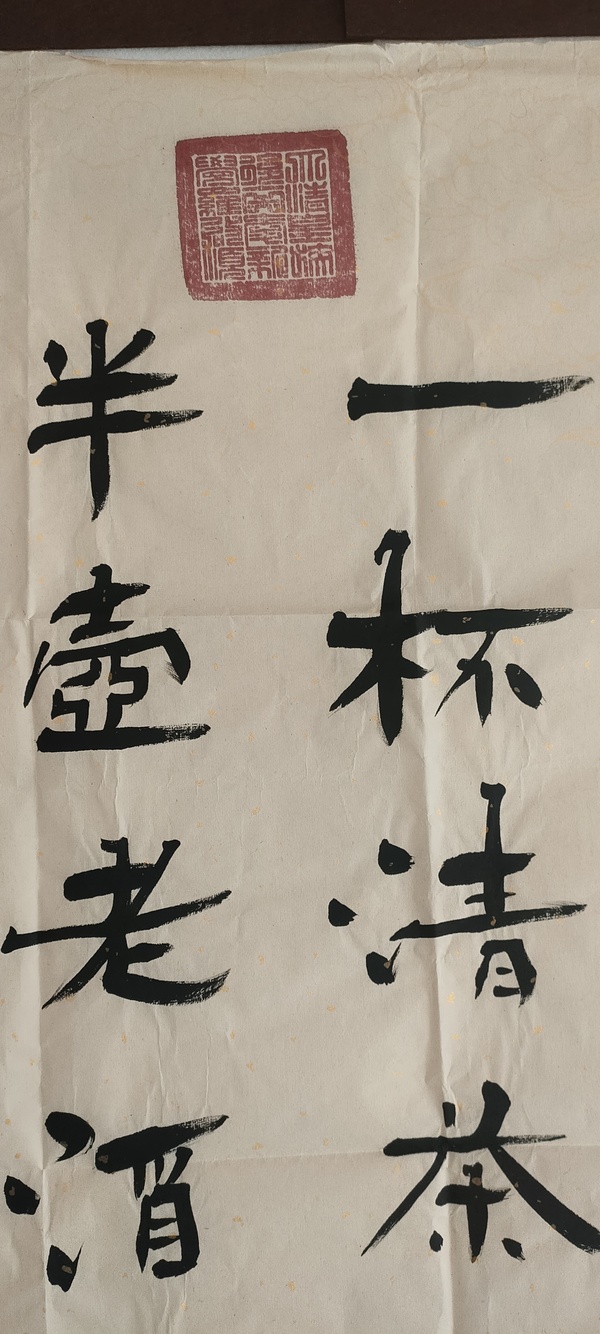 一杯清茶
半壺老酒